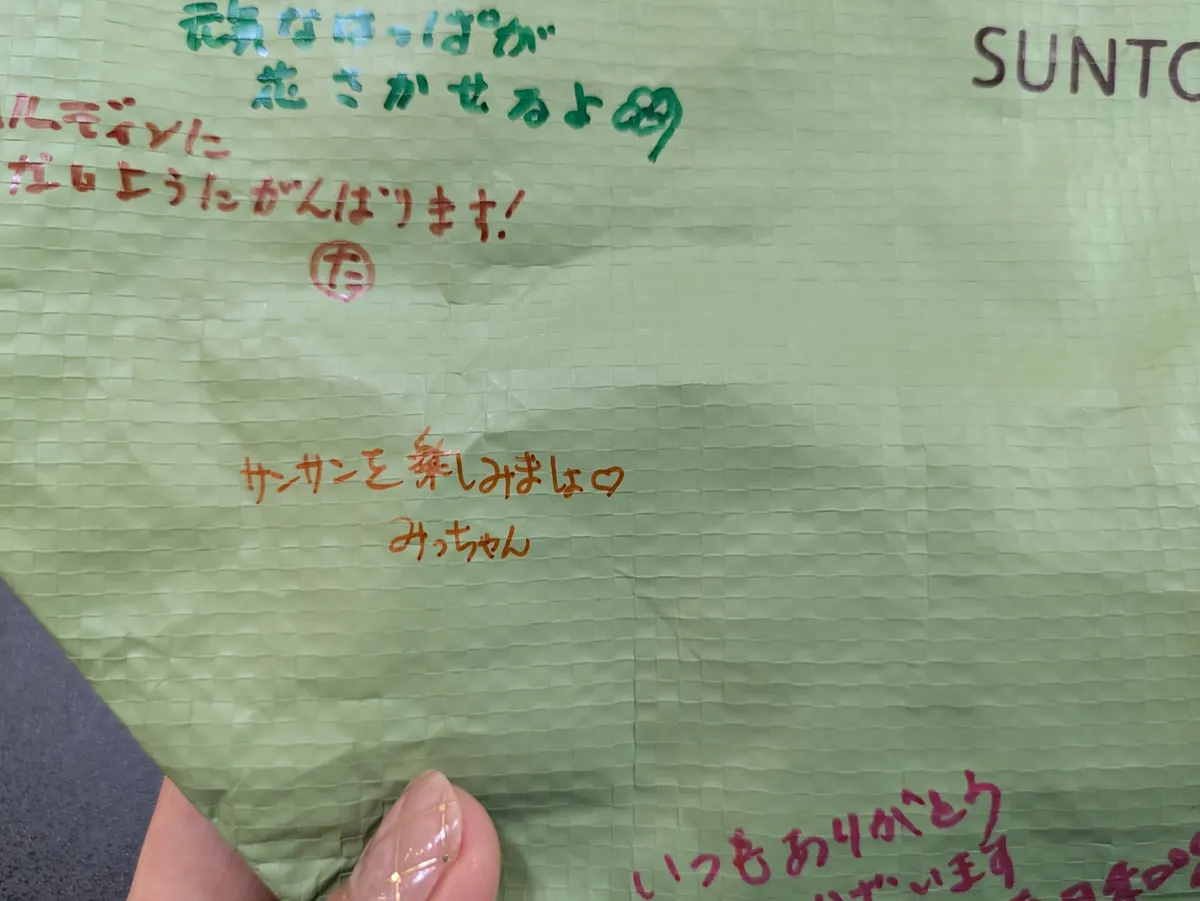 元気なはっぱが
花さかせるよ
SUNTO
ルディンに
ようにがんばります!
た
サンサンを楽しみましょ♡
みっちゃん
いつもありがとう
ございます